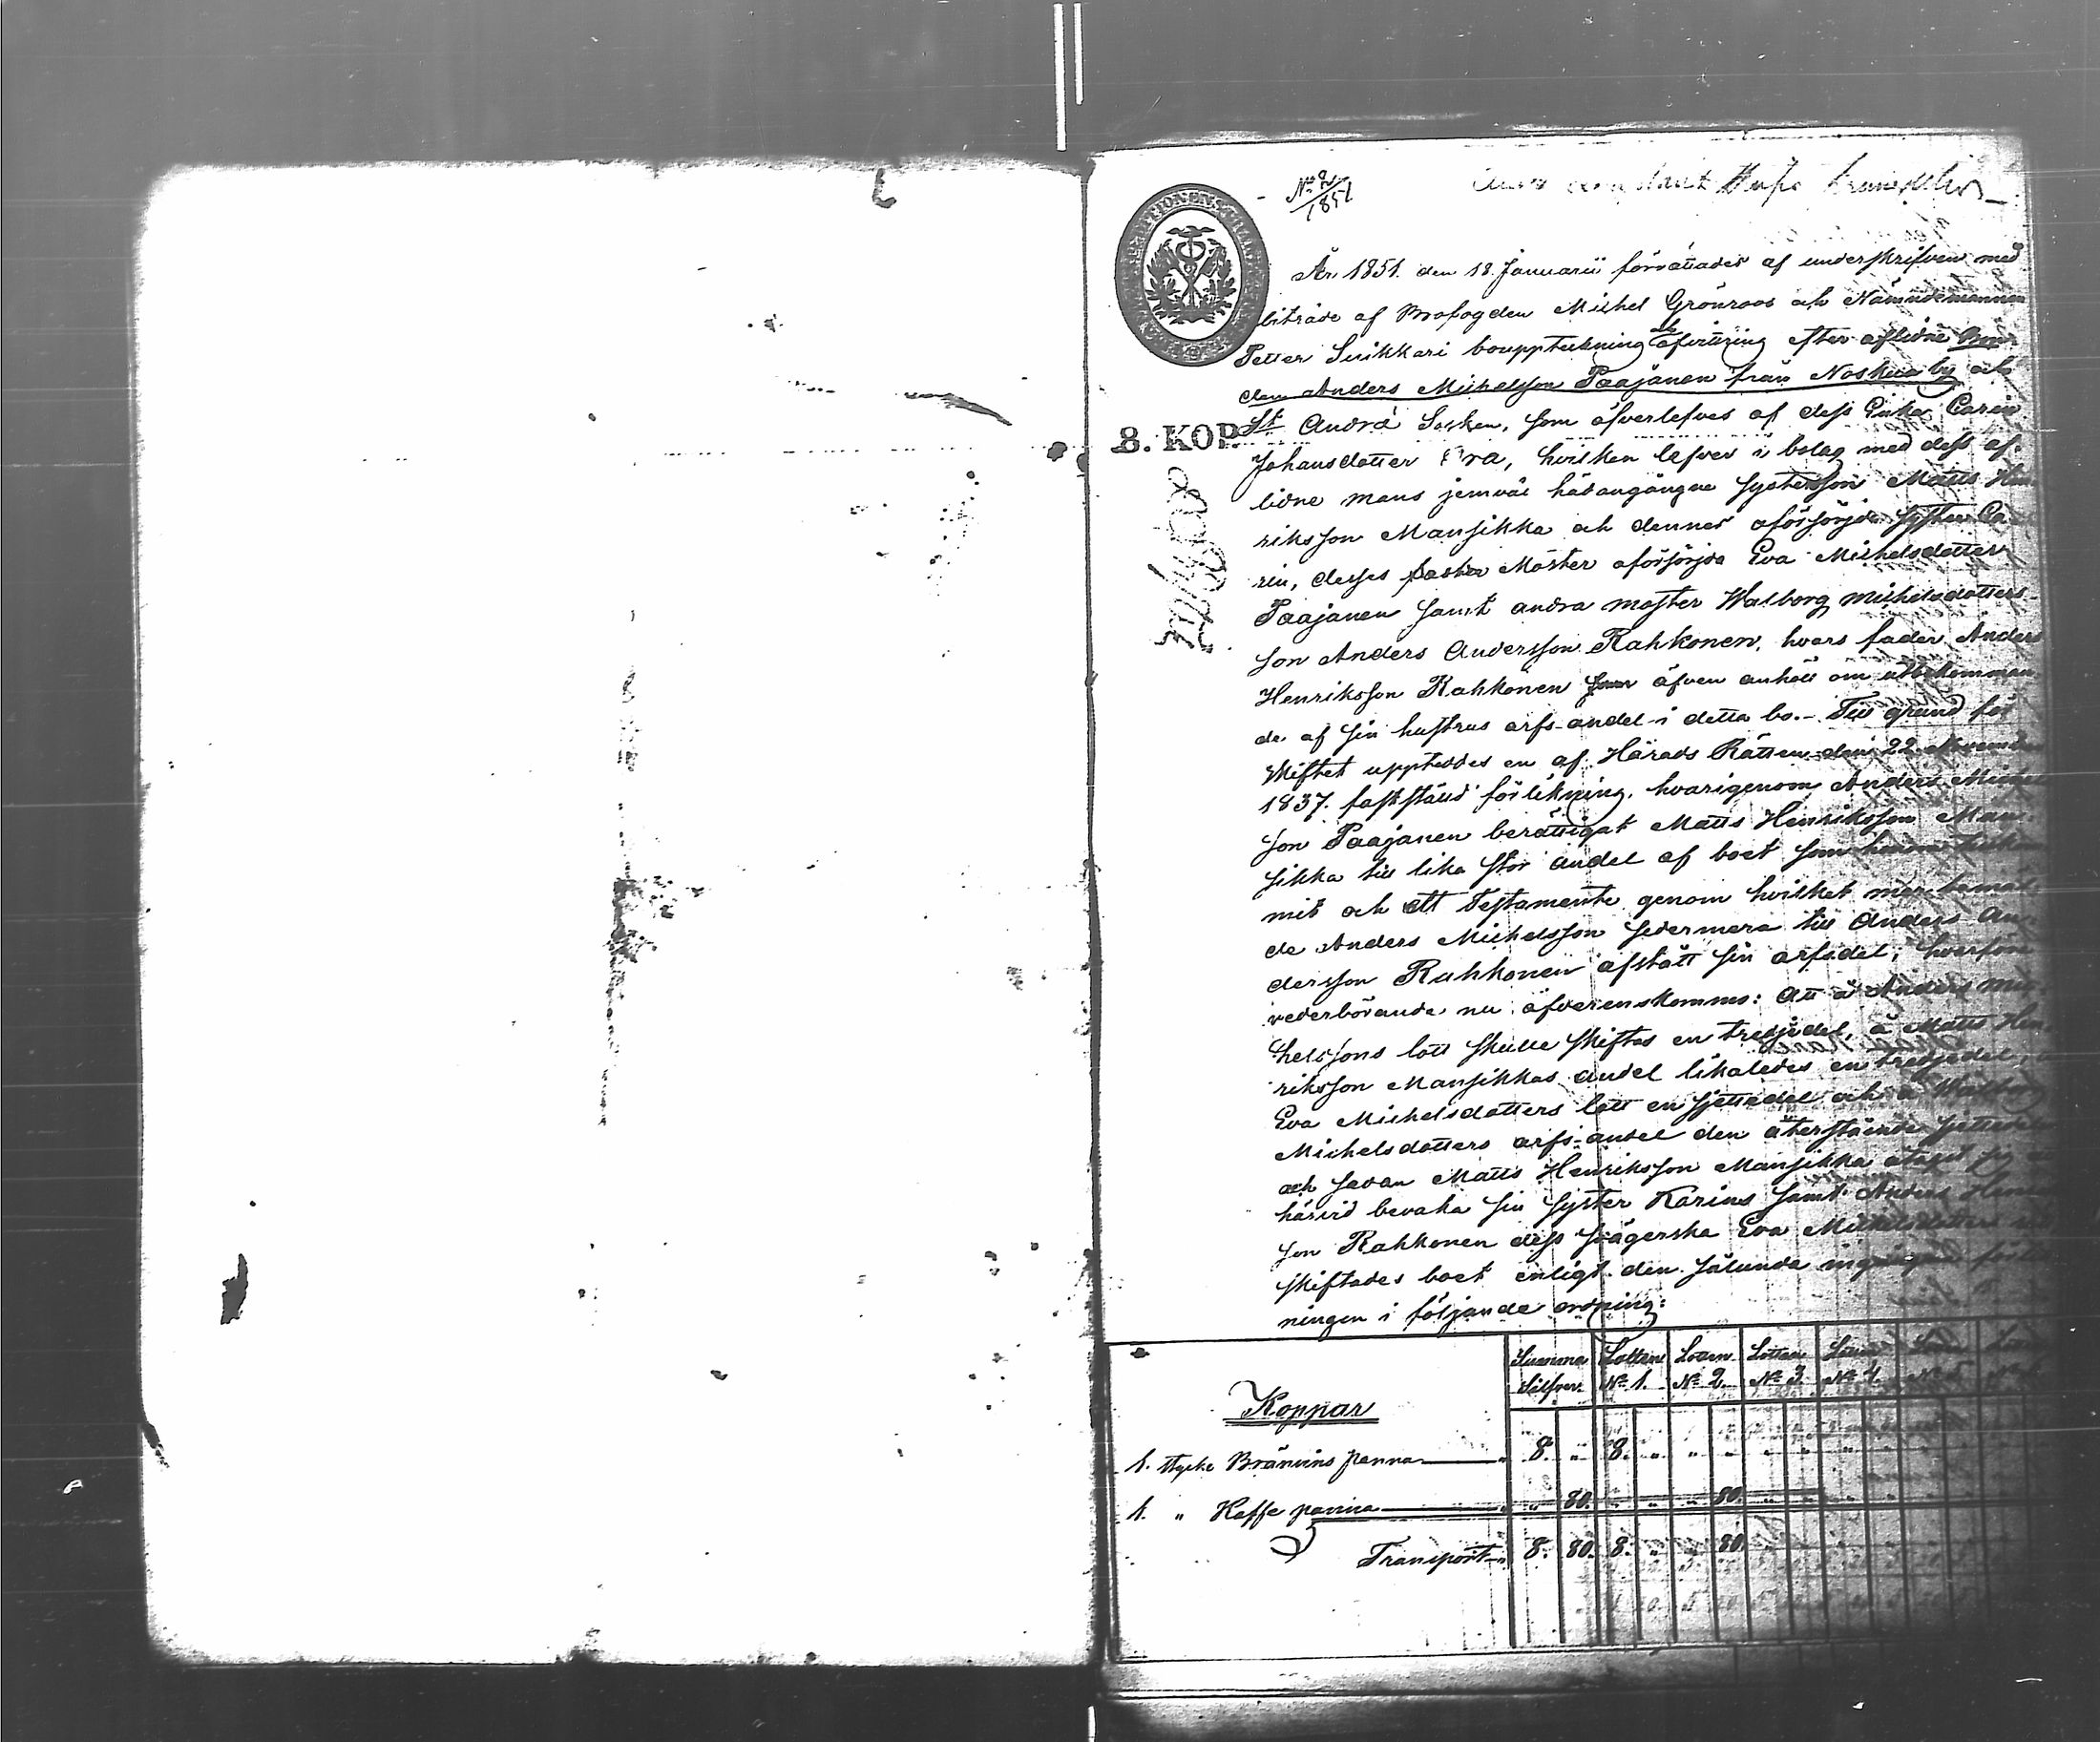 No 2/1851
År 1851. den 18. Januarii förrättades af underskrifven med
biträde af Brofogden Michel Grönroos och Nämndemannen
Petter Suikkari bouppteckning och afvittring efter aflidne Bon-
den Anders Michelsson Paajanen från Noskua by och
St Andræ Socken, som öfverlefves af dess Enka Carin
8. KOP.
Johansdotter Ora, hvilken lefver i bolag med dess af-
lidne mans jemväl hädangångne systersson Matts Hen
riksson Mansikka och dennes oförsörjda syster Ca-
rin, desses Moster oförsörjda Eva Michelsdotter
Paajanen samt andra moster Walborg Michelsdotters
son Anders Andersson Rahkonen, hvars fader Anders
Henriksson Rahkonen äfven anhöll om utbekomman
de af sin hustrus arfs-andel i detta bo. - Till grund för
skiftet uppteddes en af Härads Rätten den 22 November
1837. fastställd förlikning, hvarigenom Anders Michels
son Paajanen berättigat Matts Henriksson Man-
sikka till lika stor andel af boet som
mit och ett Testamente genom hvilket merbemäl-
de Anders Michelsson sedermera till Anders An-
dersson Rahkonen afstått sin arfsdel; hvarföre
vederbörande nu öfverenskommo: Att å Anders Mic
helssons lott skulle skiftas en tredjedel, å Matts Hen-
riksson Mansikkas andel likaledes en tredjedel,
Eva Michelsdotters lott en sjettedel och å Walborg
Michelsdotters arfs-andel den återstående sjettede
och sedan Matts Henriksson Mansikka åtagit sig
härvid bevaka sin syster Karins samt Anders Henriks
son Rahkonen dess svägerska Eva Michelsdotters
skiftades boet enligt den sålunda ingångna
ningen i följande ordning:
Summa Silfver. Lotten No 1. Lotten No 2. Lotten No 3. Lotten No 4. No 5.
Koppar
1. stycke Bränvins panna 8. " 8. " " "
1. " Kaffe panna " 80. " " " 80.
Transport 8. 80. 8. " " 80.